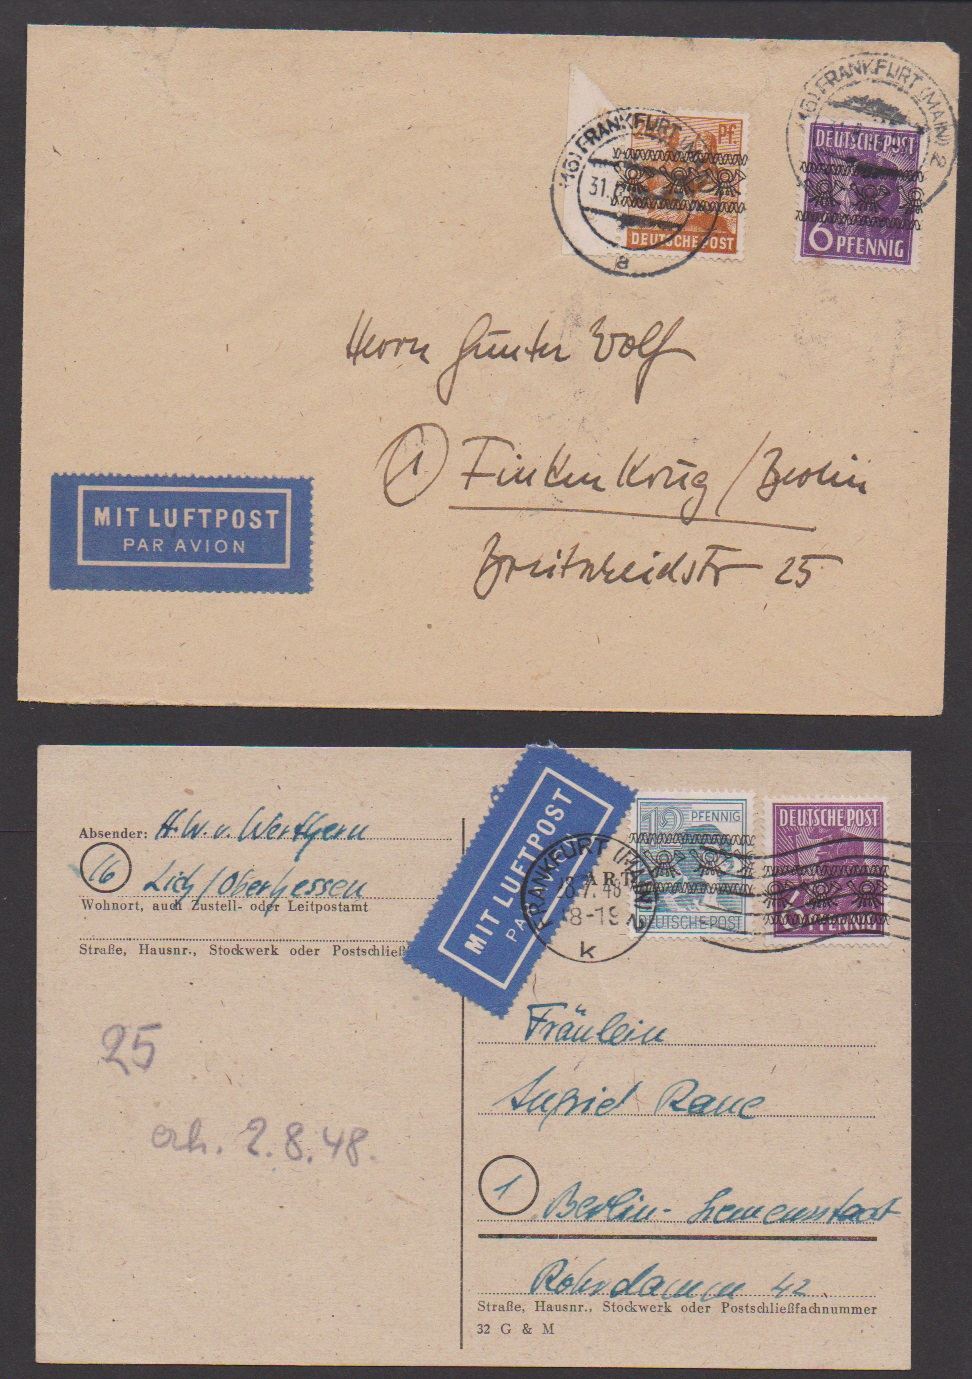 (16) FRANKFURT (MAIN) 2
Pf.
(16) FRANKFURT
31.
a
DEUTSCHE POST
DEUTSCHE POST
6 PFENNIG
Herrn Günter Wolf
1 Finkenkrug / Berlin
Breitscheidstr 25
MIT LUFTPOST
PAR AVION
Absender: H. W. v. Werthern
16
Lich / Oberhessen
Wohnort, auch Zustell- oder Leitpostamt
Straße, Hausnr., Stockwerk oder Postschließ
MIT LUFTPOST
PAR
12 PFENNIG
DEUTSCHE POST
DEUTSCHE POST
PFENNIG
FRANKFURT (MAIN) 2
7. 48
k
ART
25
erh. 2.8.48.
Fräulein
Ingrid
1 Berlin-Siemensstadt
Rohrdamm 42
Straße, Hausnr., Stockwerk oder Postschließfachnummer
32 G & M